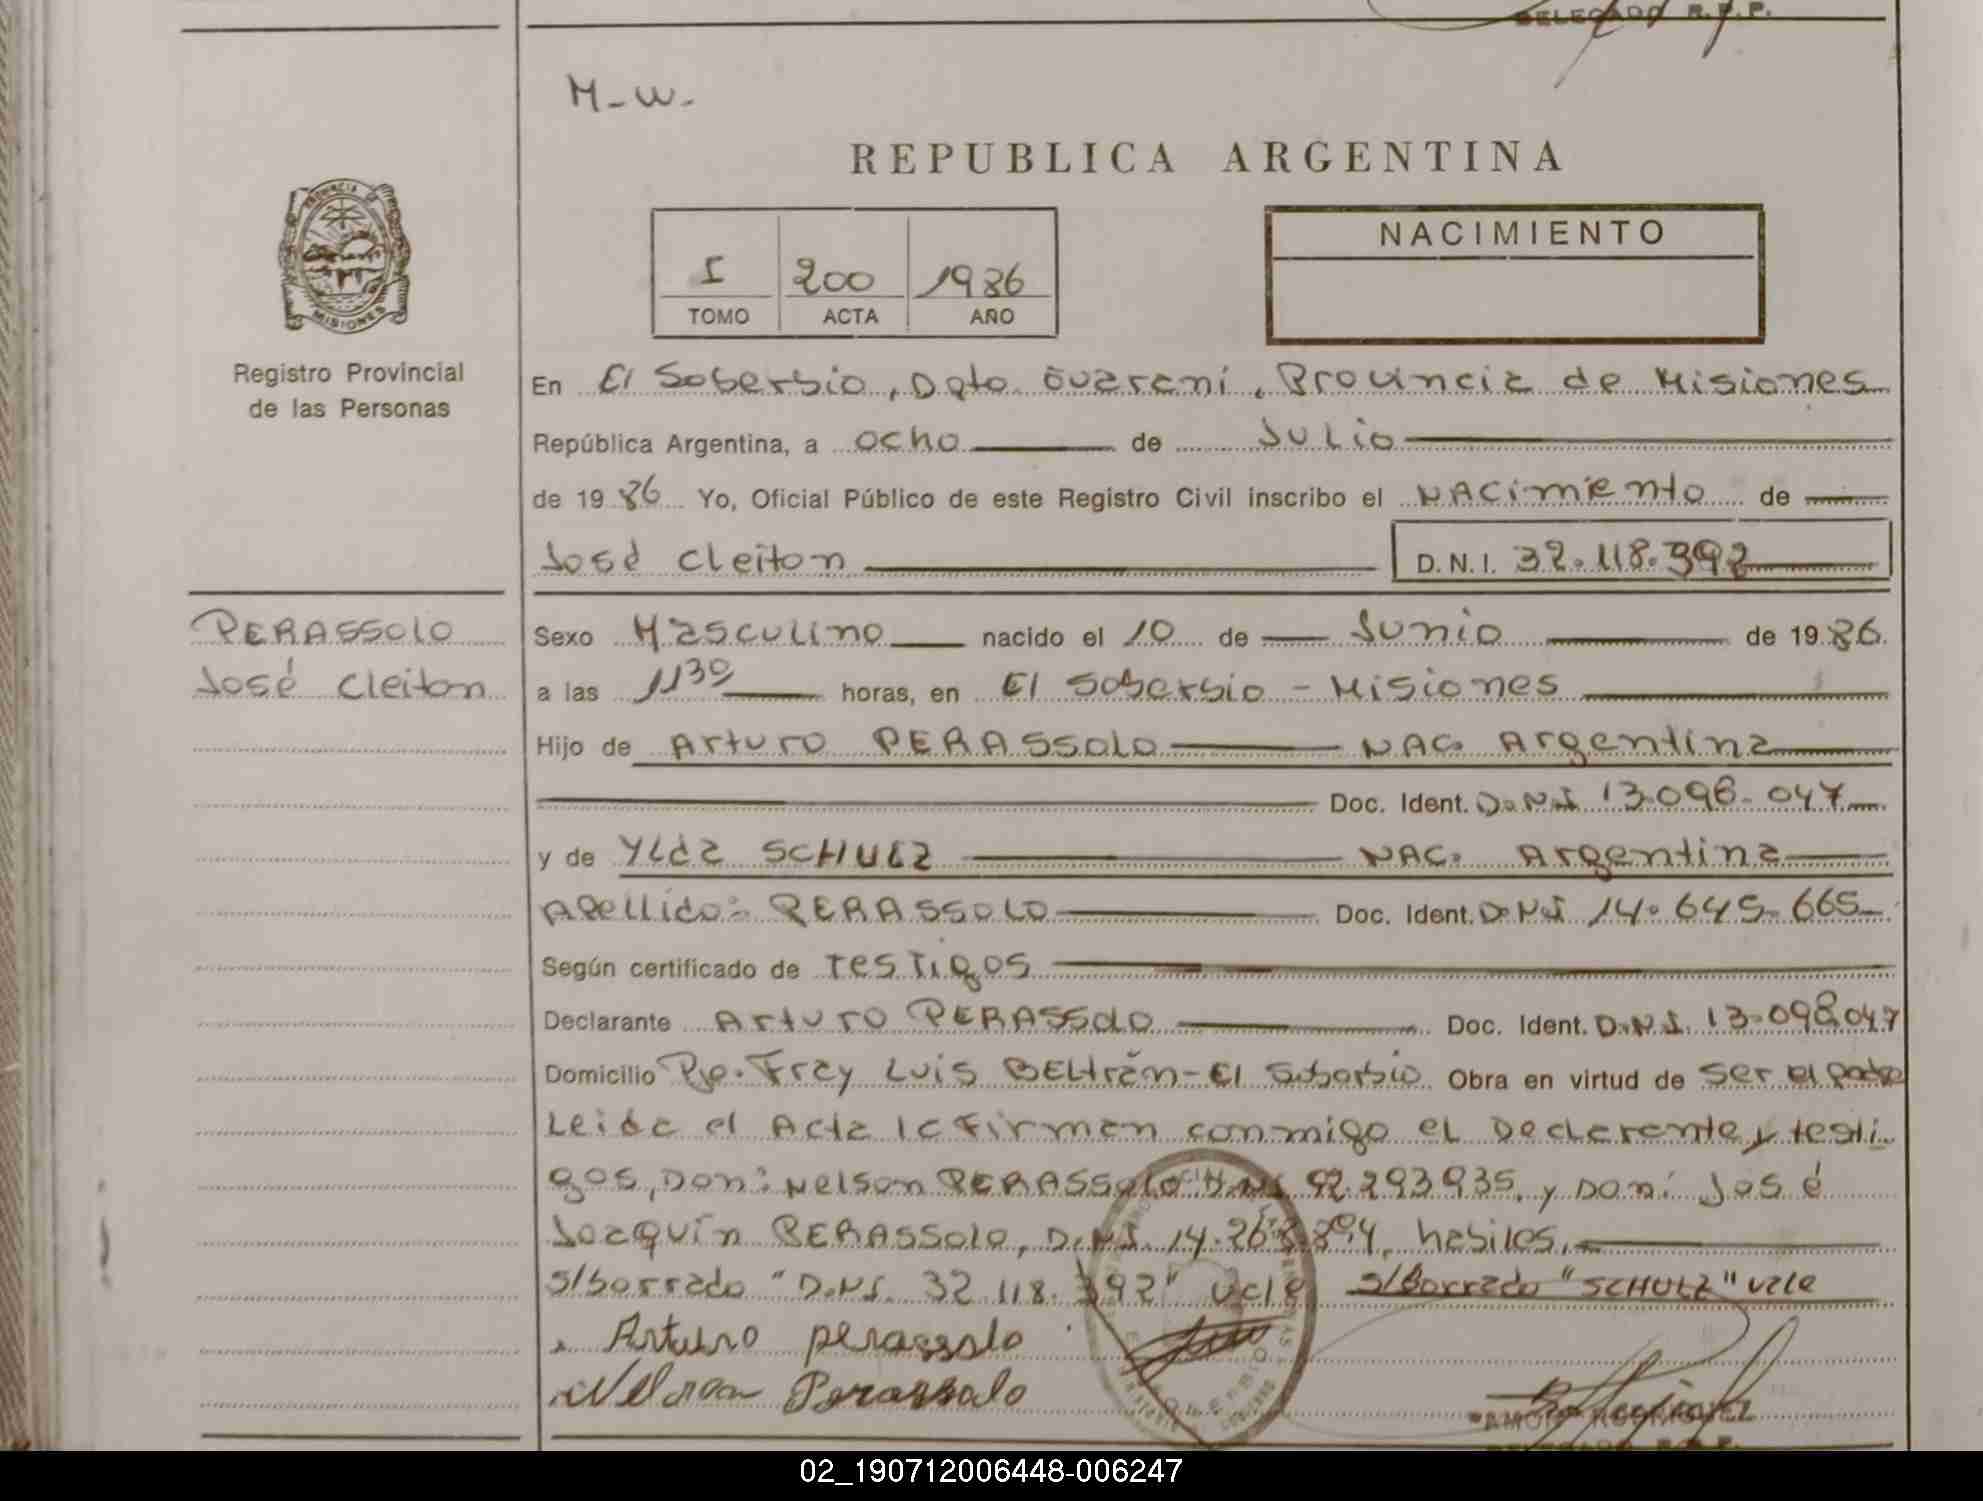 DELEGADO R.P.P.
M-W-
REPUBLICA ARGENTINA
PROVINCIA DE
MISIONES
Registro Provincial
de las Personas
I 200 1986
TOMO ACTA AÑO
NACIMIENTO
En El Soberbio, Dpto. Guaraní, Provincia de Misiones
República Argentina, a ocho de Julio
de 1986 Yo, Oficial Público de este Registro Civil inscribo el NACimiento de
José Cleiton D.N.I. 32.118.392
PERASSOLO
José Cleiton
Sexo Masculino nacido el 10 de Junio de 1986.
a las 1130 horas, en El Soberbio - Misiones
Hijo de Arturo PERASSOLO NAC. Argentina
Doc. Ident. D.N.I 13.098.047
y de YLda SCHULZ NAC. Argentina
Apellido: PERASSOLO Doc. Ident. D.N.I 14.645.665
Según certificado de Testigos
Declarante Arturo PERASSOLO Doc. Ident. D.N.I. 13.098.047
Domicilio Pje. Fray Luis BELtrán - El Soberbio Obra en virtud de ser el padre
Leida el Acta la Firman conmigo el Declarante y testi-
gos, Don: Nelson PERASSOLO D.N.I. 92.293935, y Don: José
Joaquín PERASSOLO, D.N.I. 14.268.894, habiles.
s/borrado "D.N.I. 32.118.392" vale s/Borrado "SCHULZ" vale
Arturo perassolo
Nelson Perassolo
DELEGADO R.P.P.
02_190712006448-006247